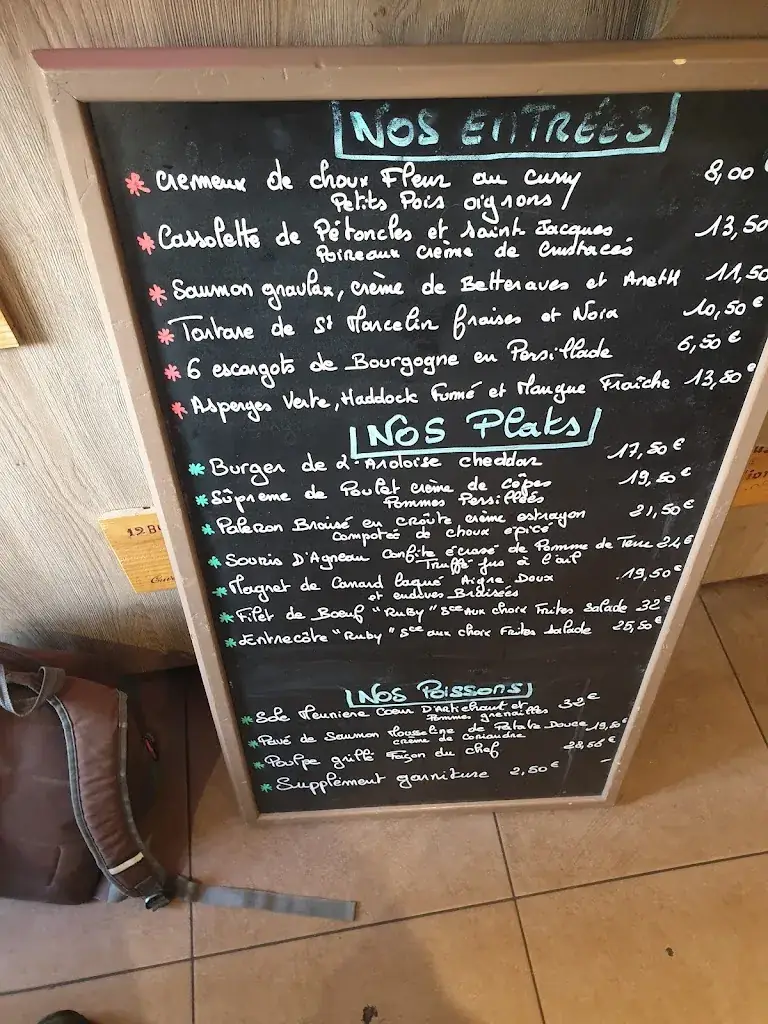 NOS ENTRÉES
Crémeux de choux Fleur au Curry 8,00
Petits Pois oignons
Cassolette de Pétoncles et Saint Jacques 13,50
Poireaux crème de Crustacés
Saumon gravlax, crème de Betteraves et Aneth 11,50
Tartare de St Marcelin fraises et Noix 10,50€
6 escargots de Bourgogne en Persillade 6,50€
Asperges Verte, Haddock Fumé et Mangue Fraîche 13,50€
NOS Plats
Burger de L'Ardoise cheddar 17,50€
Sûpreme de Poulet crème de cêpes 19,50€
Pommes Persillées
Paleron Braisé en croûte crème estragon 21,50€
Compotée de choux épicé
Souris D'Agneau Confite écrasé de Pomme de Terre 24€
Truffé jus à l'ail
Magret de Canard laqué Aigre Doux 19,50€
et endives Braisées
Filet de Boeuf "Ruby" Sce Aux choix Frites Salade 32€
Entrecôte "Ruby" Sce aux choix Frites Salade 25,50€
Nos Poissons
Sole Meunière Coeur D'Artichaut et 32€
Pommes grenailles
Pavé de Saumon Mousseline de Patate Douce 19,50€
crème de Coriandre
Poulpe grillé Façon du chef 28,56€
Supplément garniture 2,50€